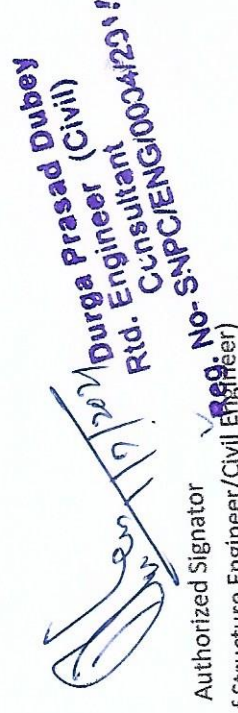 Durga Prasad Dubey
Rtd. Engineer (Civil)
Consultant
Reg. No- SNPC/ENG/0004/2011
Authorized Signator
f Structure Engineer/Civil Engineer)